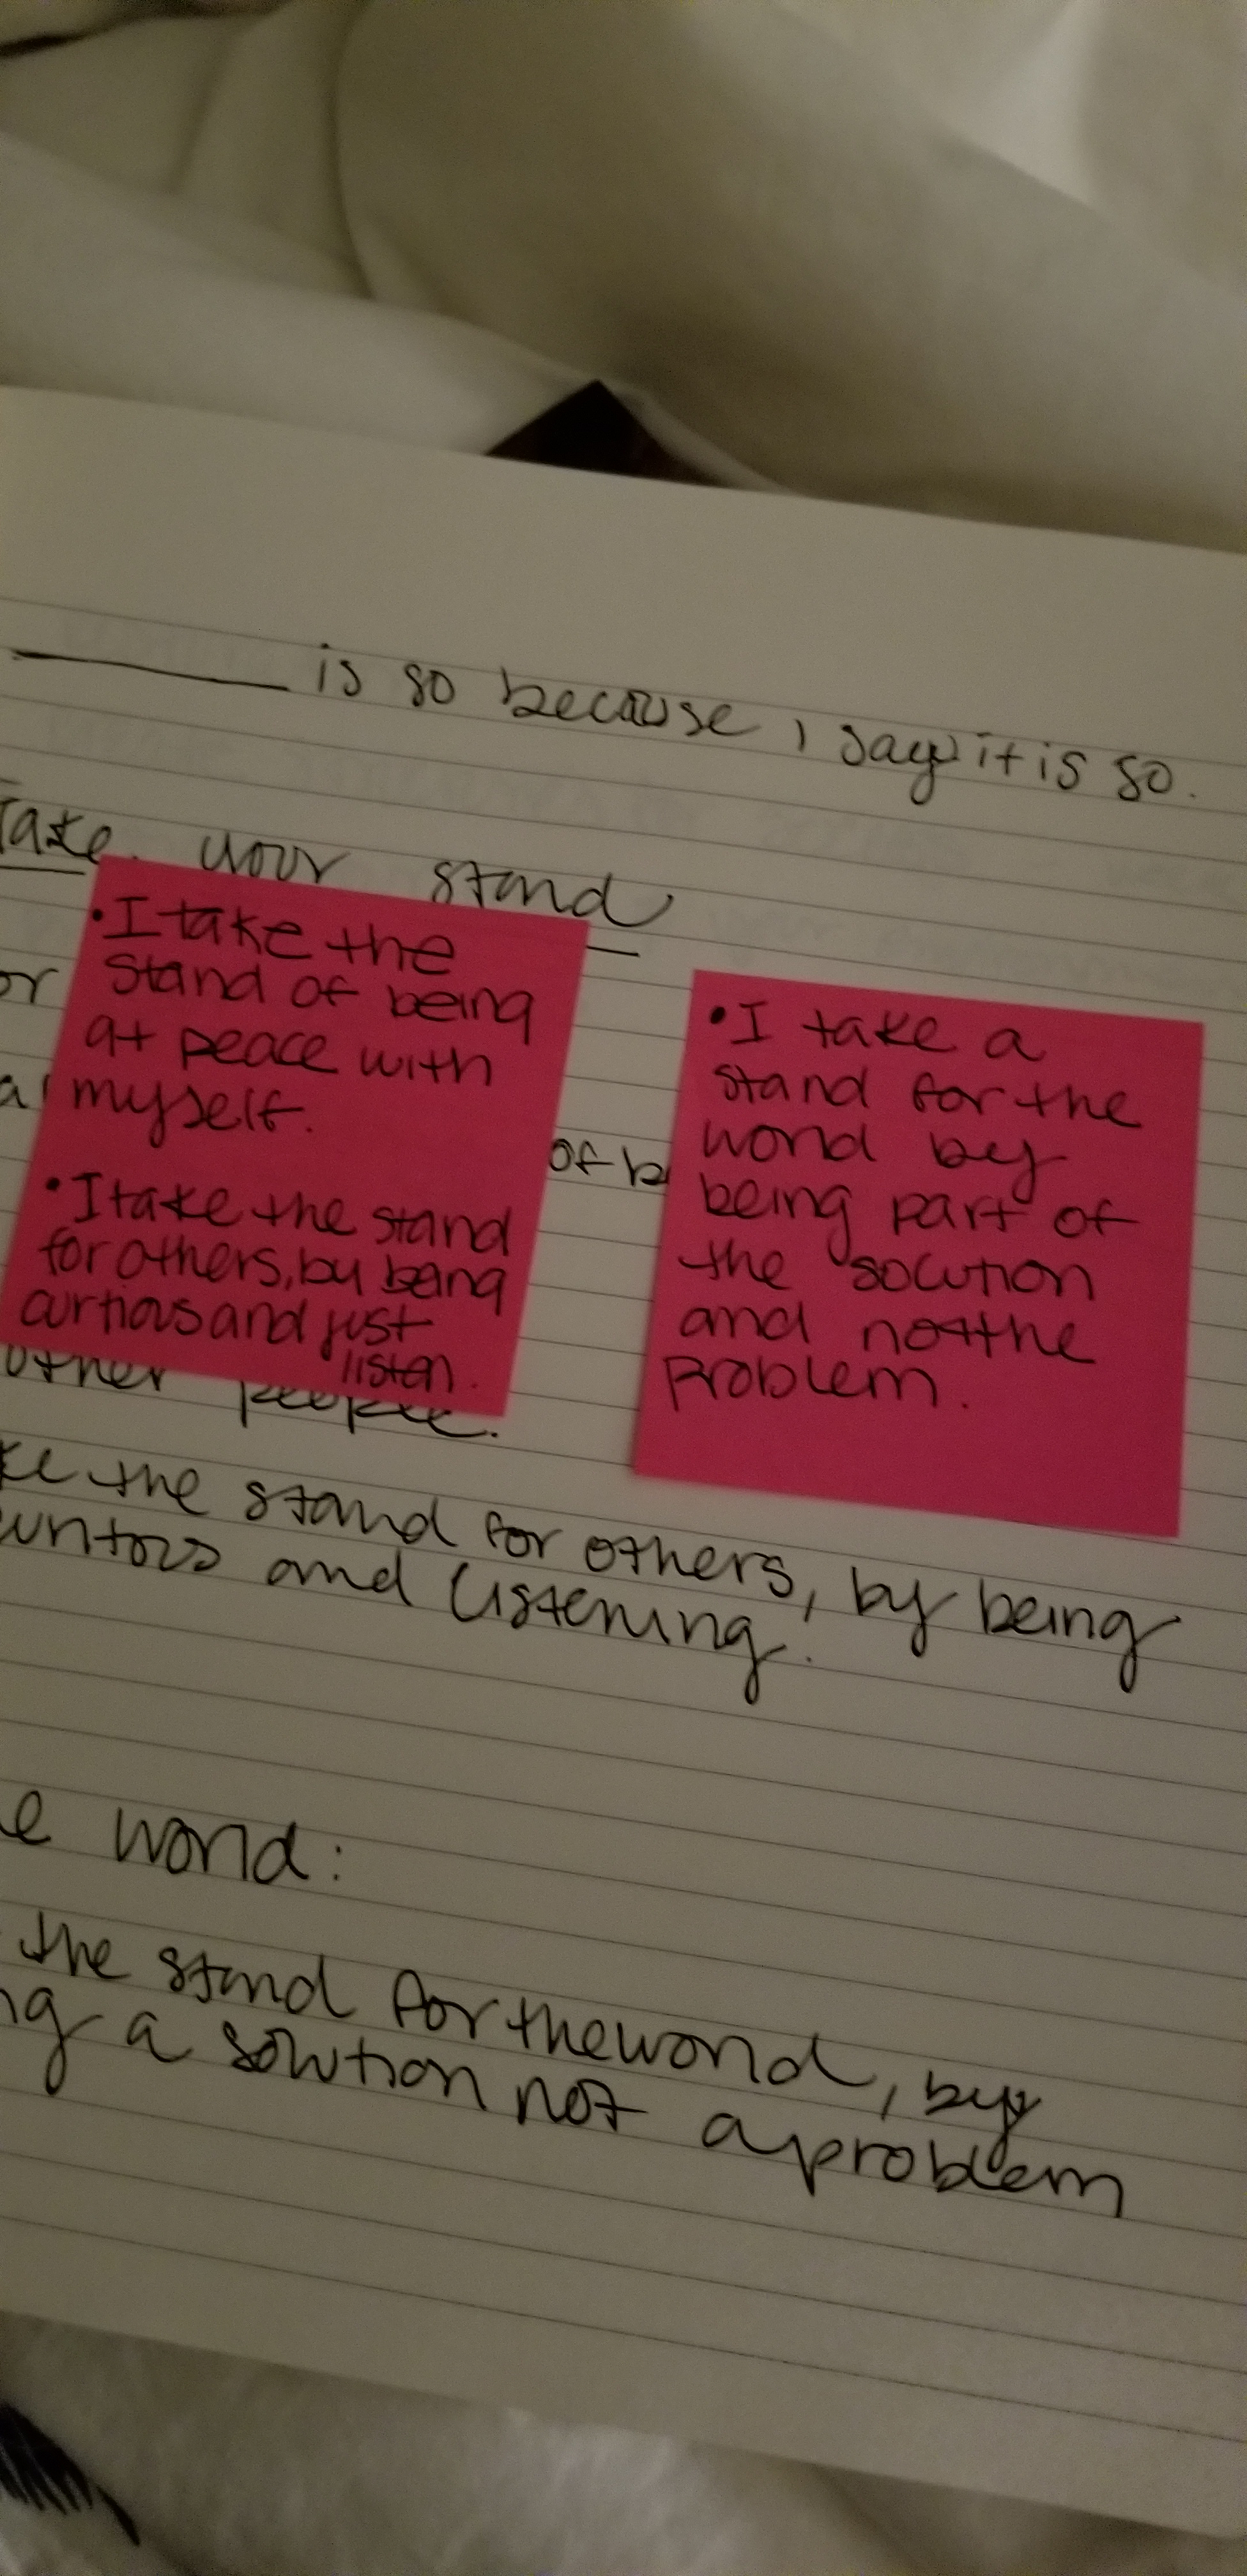 ______ is so because I say it is so.
Take your stand
or
• I take the
stand of being
at peace with
myself.
• I take the stand
for others, by being
curtious and just
listen.
of b
• I take a
stand for the
world by
being part of
the solution
and not the
problem.
other people.
ke the stand for others, by being
and listening.
e world:
the stand for the world, by
ng a solution not a problem